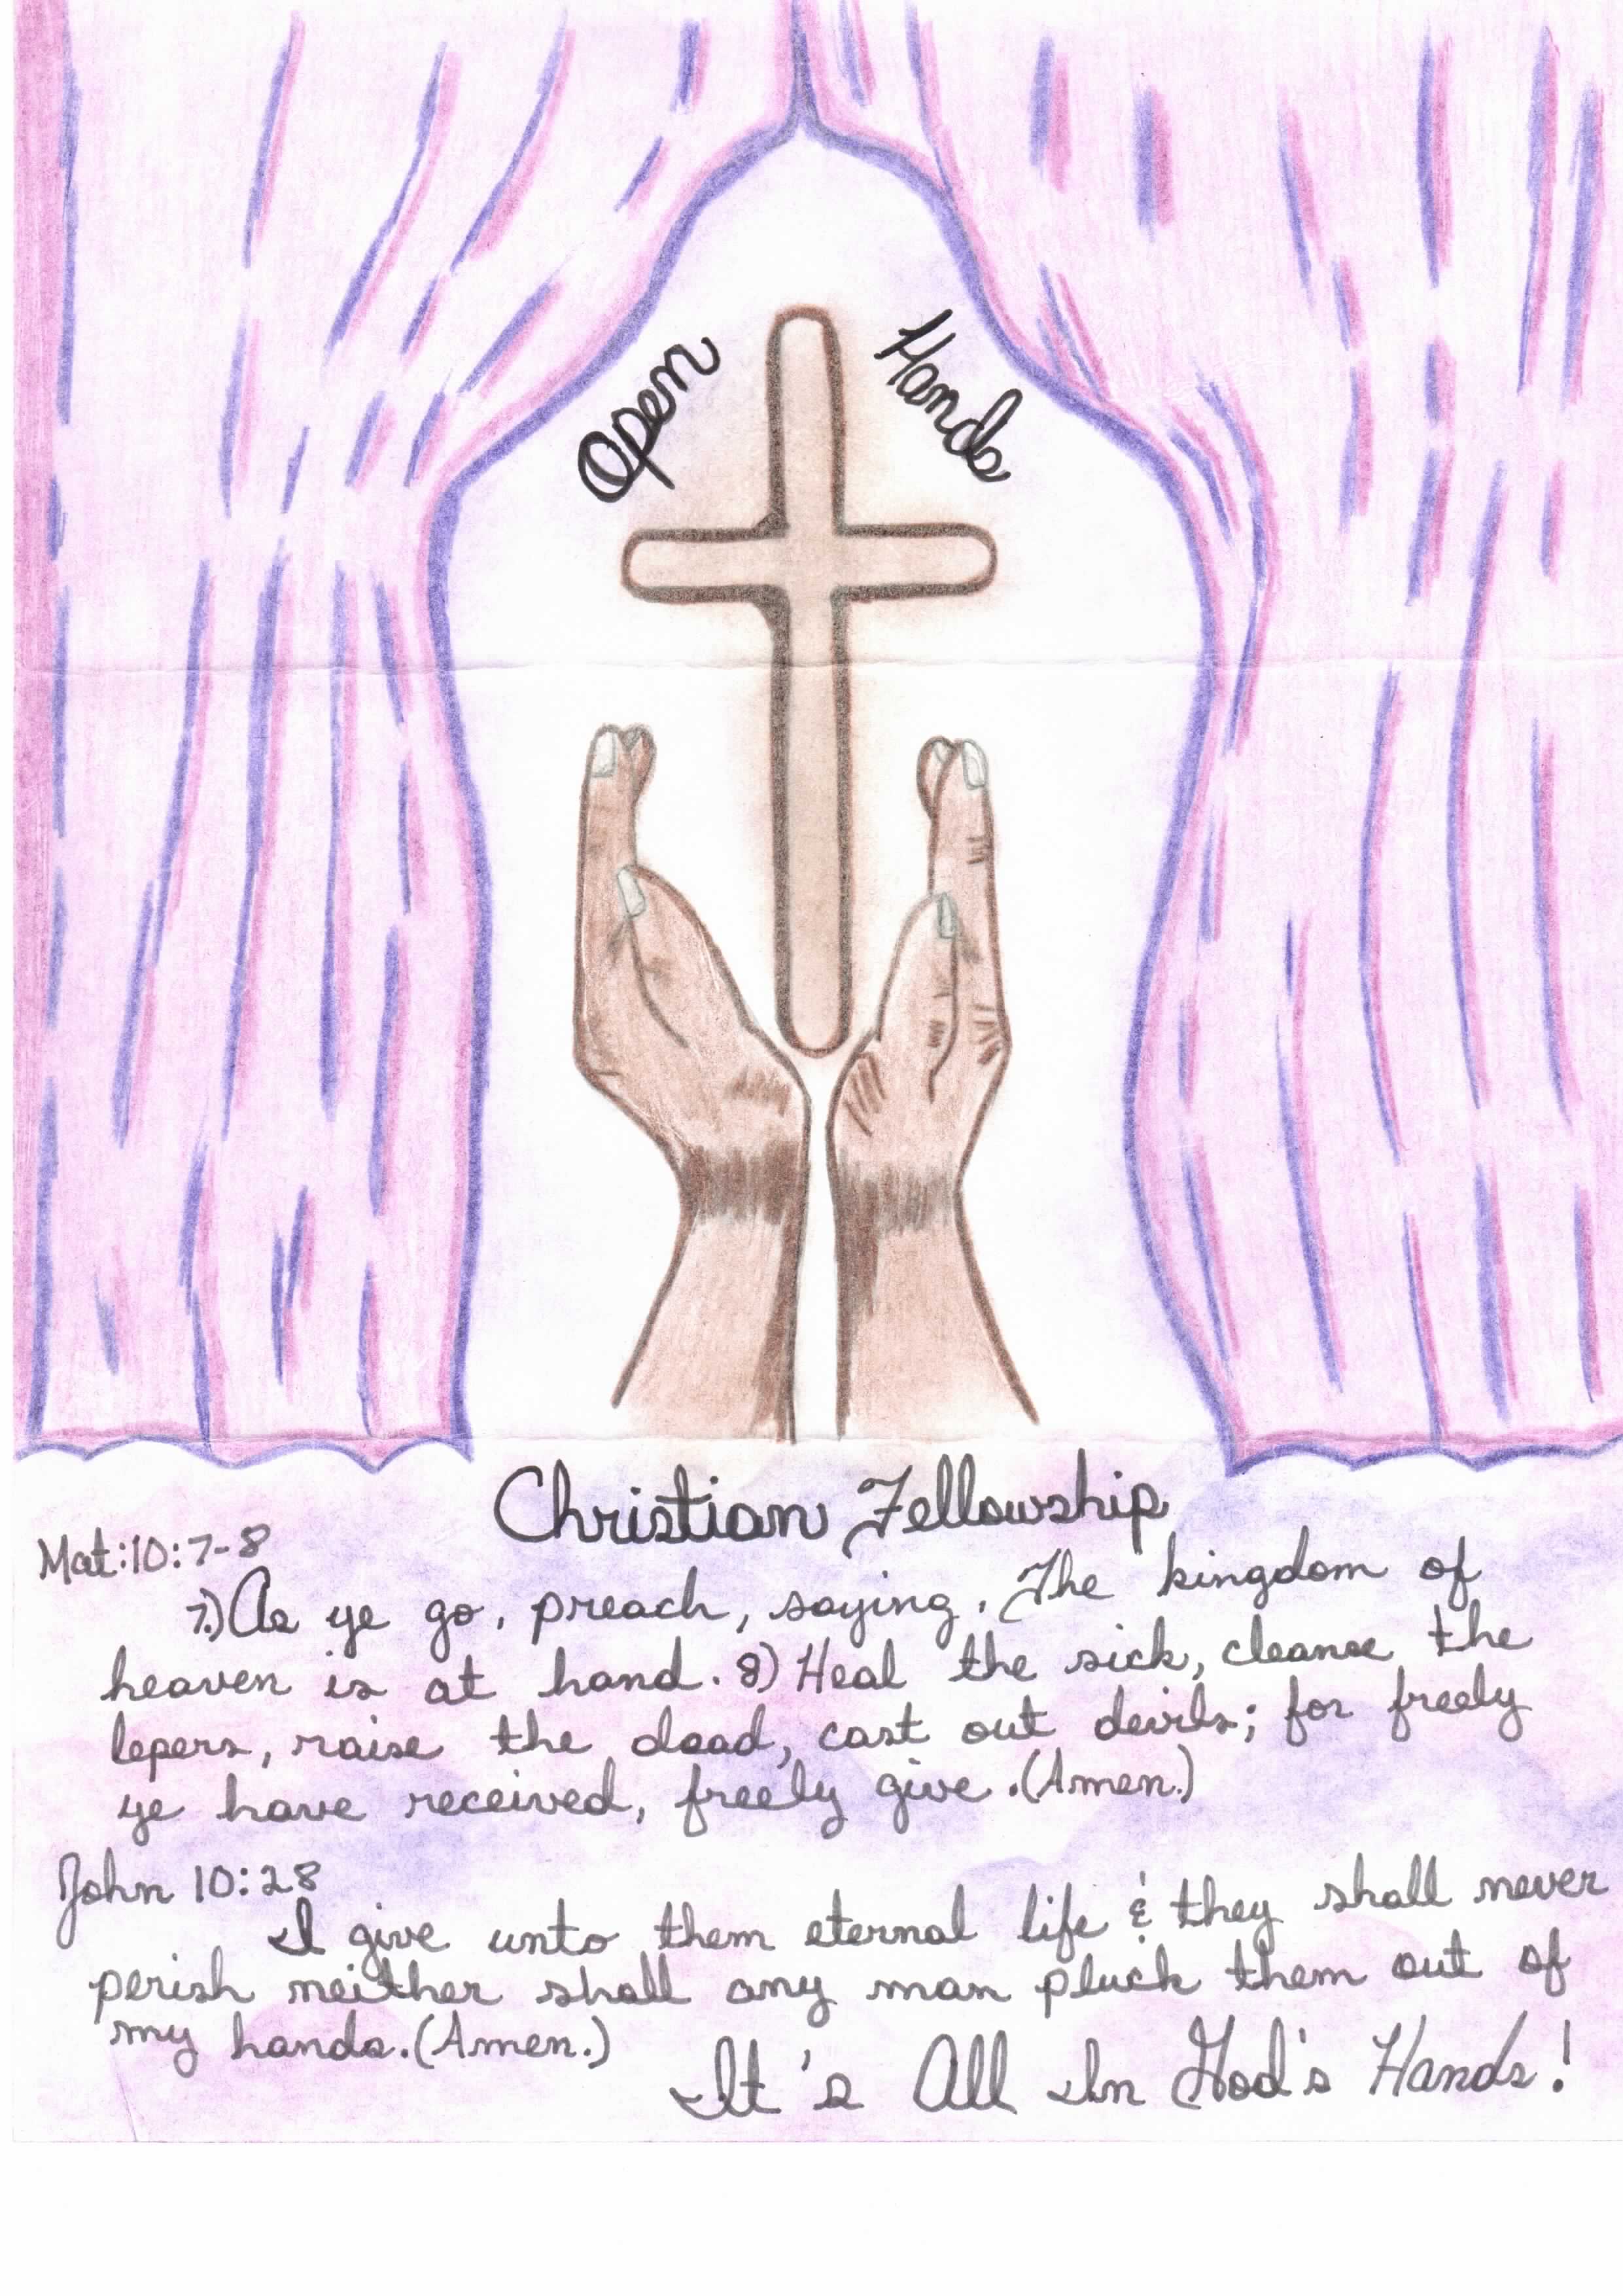 Open Hands
Christian Fellowship
Mat:10:7-8
7.) As ye go, preach, saying, The kingdom of
heaven is at hand. 8) Heal the sick, cleanse the
lepers, raise the dead, cast out devils; for freely
ye have received, freely give. (Amen.)
John 10:28
I give unto them eternal life & they shall never
perish neither shall any man pluck them out of
my hands. (Amen.)
It's All In God's Hands!